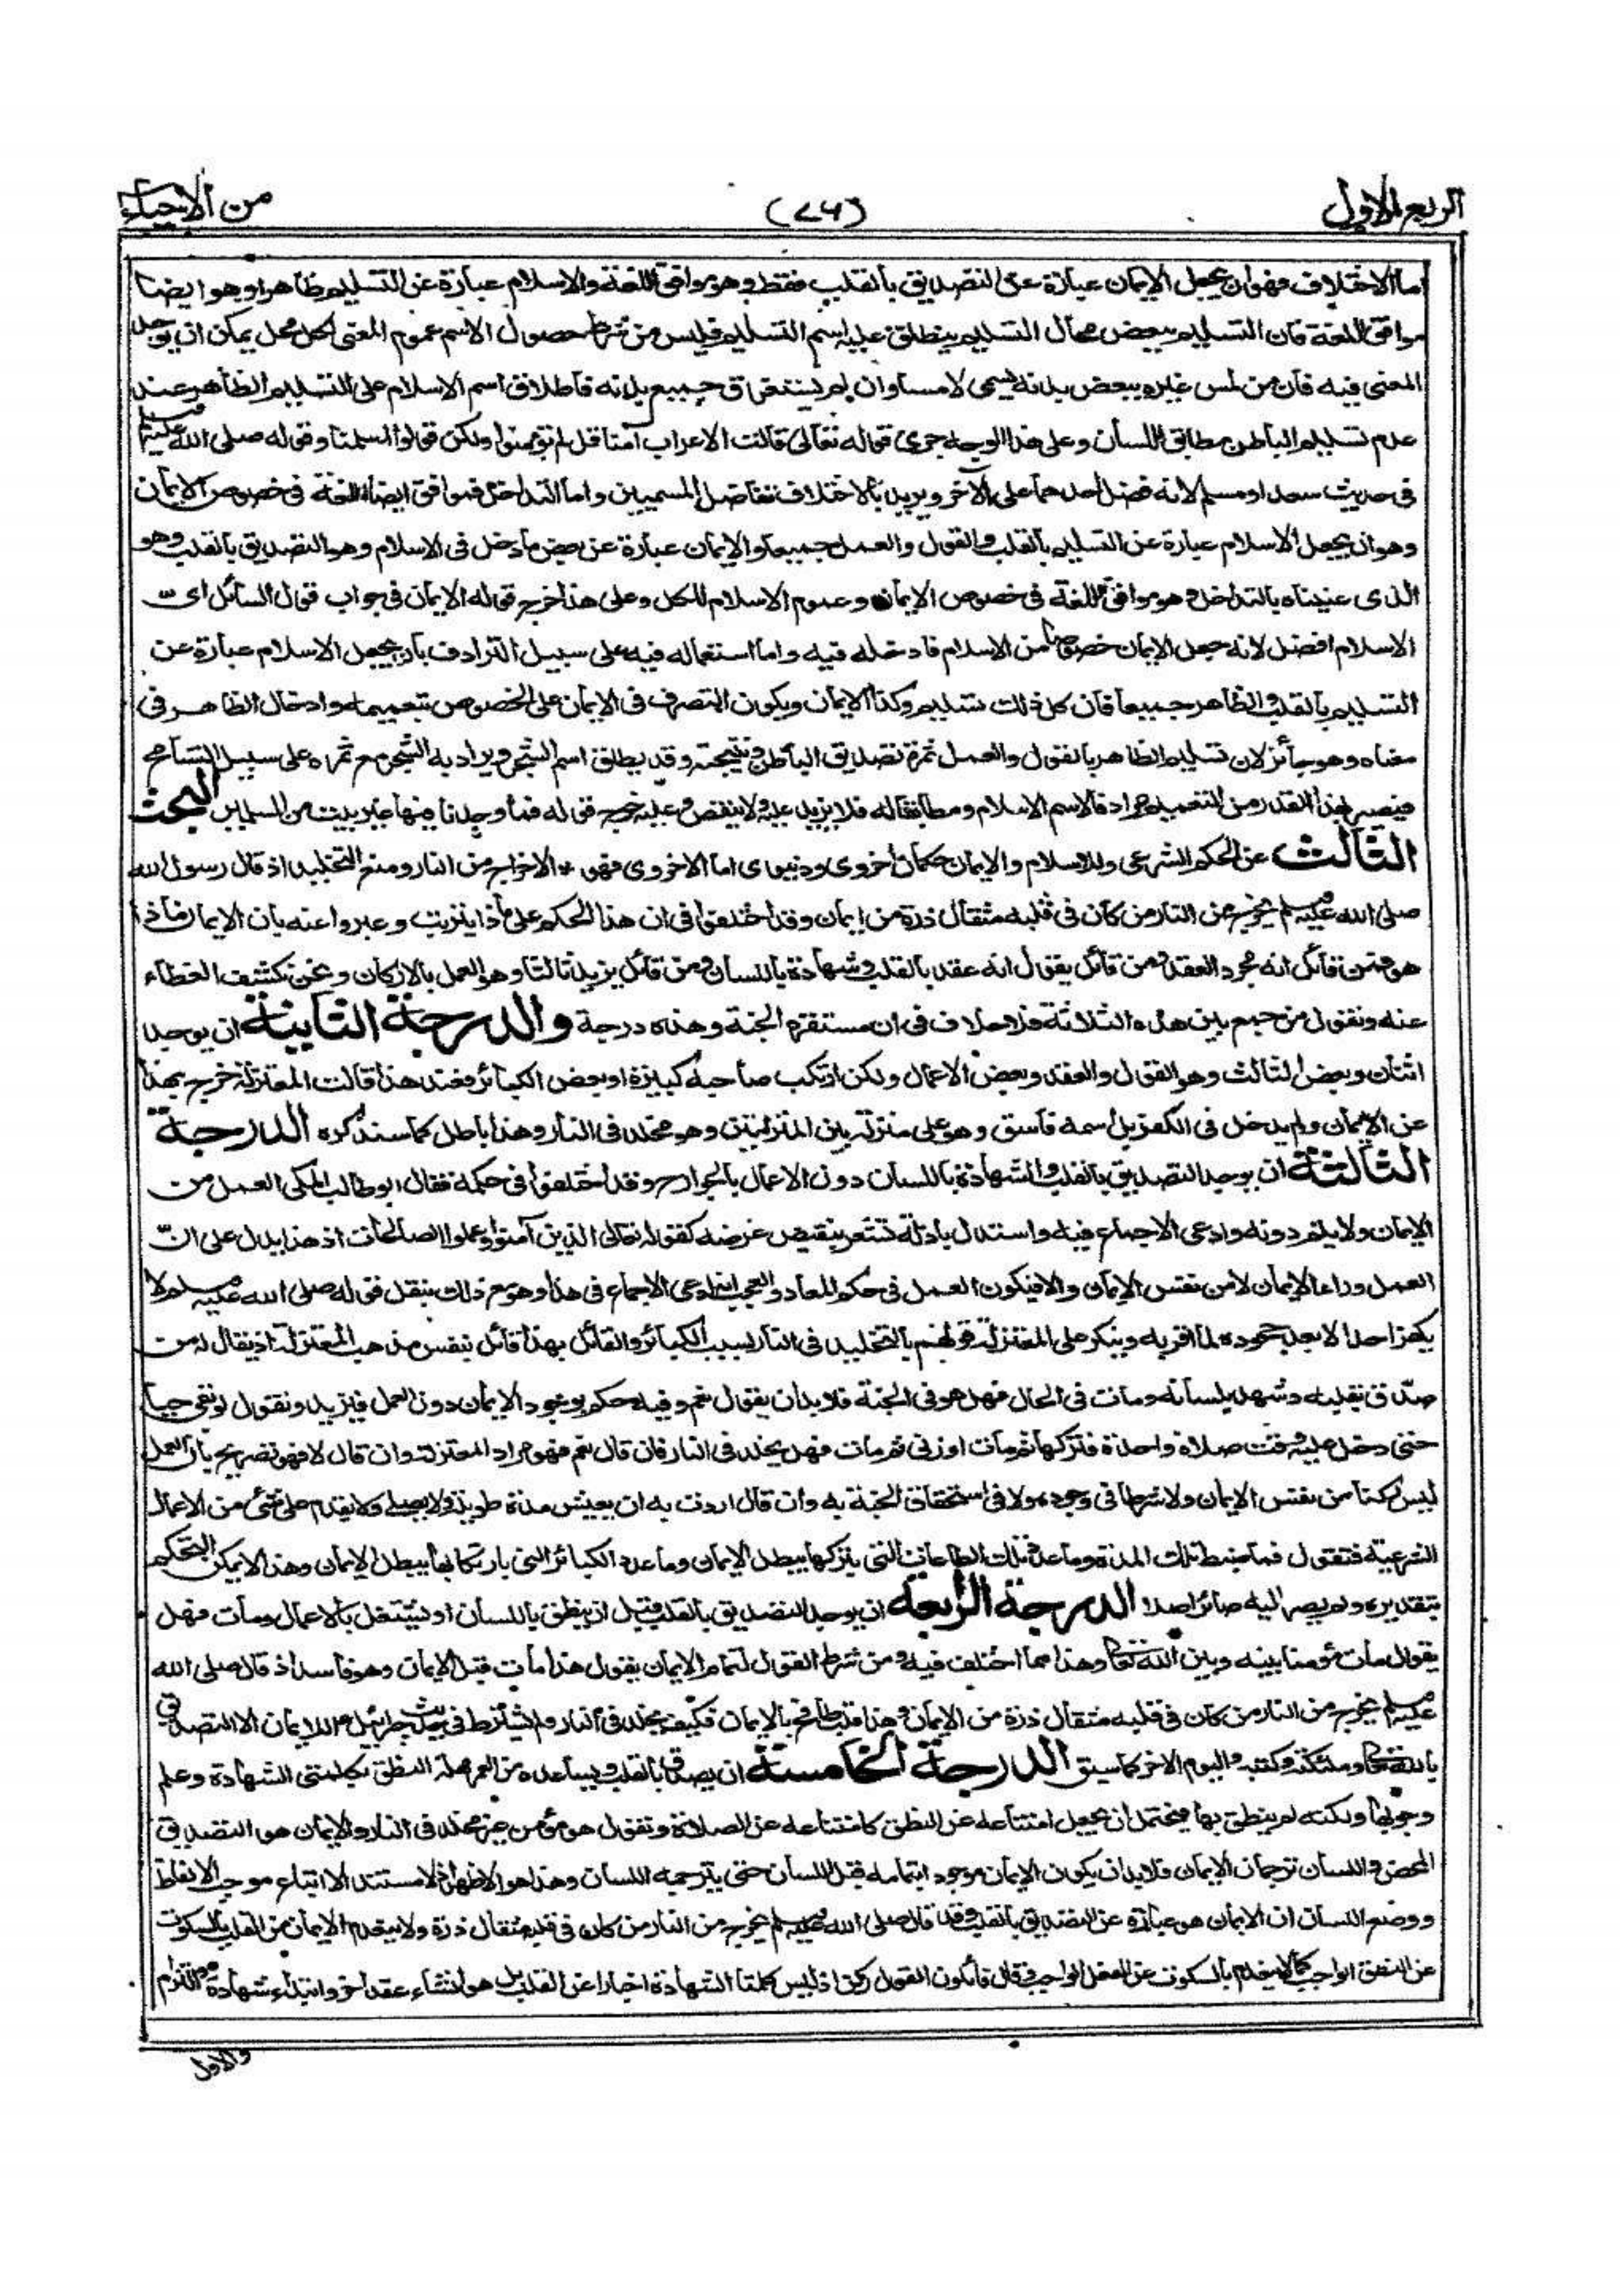 الربع الاول (٧٦) من الاحياء
اما الاختلاف فهو ان يجعل الايمان عبارة عن التصديق بالقلب فقط وهو موافق للغة والاسلام عبارة عن التسليم ظاهرا وهو ايضا
موافق للغة فان التسليم ببعض محال التسليم ينطلق عليه اسم التسليم فليس من شرط حصول الاسم عموم المعنى لكل محل يمكن ان يوجد
المعنى فيه فان من لمس غيره ببعض بدنه يسمى لامسا وان لم يستغرق جميع بدنه فاطلاق اسم الاسلام على التسليم الظاهر عند
عدم تسليم الباطن مطابق للسان وعلى هذا الوجه جرى قوله تعالى قالت الاعراب آمنا قل لم تؤمنوا ولكن قولوا اسلمنا وقوله صلى الله عليه وسلم
فى حديث سعد او مسلم لانه فضل احدهما على الآخر ويريد بالاختلاف تفاضل المسميين واما التداخل فموافق ايضا للغة فى خصوص الايمان
وهو ان يجعل الاسلام عبارة عن التسليم بالقلب والقول والعمل جميعا والايمان عبارة عن بعض ما دخل فى الاسلام وهو التصديق بالقلب وهو
الذى عنيناه بالتداخل وهو موافق للغة فى خصوص الايمان وعموم الاسلام للكل وعلى هذا خرج قوله الايمان فى جواب قول السائل اى
الاسلام افضل لانه جعل الايمان خصوصا من الاسلام فادخله فيه واما استعماله فيه على سبيل الترادف بان يجعل الاسلام عبارة عن
التسليم بالقلب والظاهر جميعا فان كل ذلك تسليم وكذا الايمان ويكون التصرف فى الايمان على الخصوص بتعميمه وادخال الظاهر فى
معناه وهو جائز لان تسليم الظاهر بالقول والعمل ثمرة تصديق الباطن ونتيجته وقد يطلق اسم الشجر ويراد به الشجر مع ثمره على سبيل التسامح
فيصير بهذا القدر من التعميم مرادفا لاسم الاسلام ومطابقا له فلا يزيد عليه ولا ينقص وعليه خرج قوله فما وجدنا فيها غير بيت من المسلمين البحث
الثالث عن الحكم الشرعى وللاسلام والايمان حكمان اخروى ودنيوى اما الاخروى فهو * الاخراج من النار ومنع التخليد اذ قال رسول الله
صلى الله عليه وسلم يخرج من النار من كان فى قلبه مثقال ذرة من ايمان وقد اختلفوا فى ان هذا الحكم على ماذا يترتب وعبروا عنه بان الايمان ماذا
هو فمن قائل انه مجرد العقد ومن قائل يقول انه عقد بالقلب وشهادة باللسان ومن قائل يزيد ثالثا وهو العمل بالاركان ونحن نكشف الغطاء
عنه ونقول من جمع بين هذه الثلاثة فلا خلاف فى ان مستقره الجنة وهذه درجة والدرجة الثانية ان يوجد
اثنان وبعض الثالث وهو القول والعقد وبعض الاعمال ولكن ارتكب صاحبه كبيرة او بعض الكبائر فعند هذا قالت المعتزلة خرج بهذا
عن الايمان ولم يدخل فى الكفر بل اسمه فاسق وهو على منزلة بين المنزلتين وهو مخلد فى النار وهذا باطل كما سنذكره الدرجة
الثالثة ان يوجد التصديق بالقلب والشهادة باللسان دون الاعمال بالجوارح وقد اختلفوا فى حكمه فقال ابو طالب المكى العمل من
الايمان ولا يتم دونه وادعى الاجماع فيه واستدل بادلة تشعر بنقيض غرضه كقوله تعالى الذين آمنوا وعملوا الصالحات اذ هذا يدل على انّ
العمل وراء الايمان لا من نفس الايمان والا فيكون العمل فى حكم المعاد والعجب انه ادعى الاجماع فى هذا وهو مع ذلك ينقل قوله صلى الله عليه وسلم لا
يكفر احد الا بعد جحوده لما اقر به وينكر على المعتزلة قولهم بالتخليد فى النار بسبب الكبائر والقائل بهذا قائل بنفس مذهب المعتزلة اذ يقال له من
صدّق بقلبه وشهد بلسانه ومات فى الحال فهل هو فى الجنة فلا بد ان يقول نعم وفيه حكم بوجود الايمان دون العمل فنزيد ونقول لو بقى حيا
حتى دخل عليه وقت صلاة واحدة فتركها ثم مات او زنى ثم مات فهل يخلد فى النار فان قال نعم فهو مراد المعتزلة وان قال لا فهو تصريح بان العمل
ليس ركنا من نفس الايمان ولا شرطا فى وجوده ولا فى استحقاق الجنة به وان قال اردت به ان يعيش مدة طويلة ولا يصلى ولا يقدم على شئ من الاعمال
الشرعية فنقول فما ضبط تلك المدة وما عدد تلك الطاعات التى بتركها يبطل الايمان وما عدد الكبائر التى بارتكابها يبطل الايمان وهذا لا يمكن التحكم
بتقديره ولم يصر اليه صائر اصلا الدرجة الرابعة ان يوجد التصديق بالقلب قبل ان ينطق باللسان او يشتغل بالاعمال ومات فهل
يقول مات مؤمنا بينه وبين الله تعالى وهذا مما اختلف فيه ومن شرط القول لتمام الايمان يقول هذا مات قبل الايمان وهو فاسد اذ قال صلى الله
عليه وسلم يخرج من النار من كان فى قلبه مثقال ذرة من الايمان وهذا قلبه طافح بالايمان فكيف يخلد فى النار ولم يشترط فى حديث جبرائيل م للايمان الا التصديق
بالله تعالى وملئكته وكتبه واليوم الآخر كما سبق الدرجة الخامسة ان يصدق بالقلب ويساعده من العمر مهلة النطق بكلمتى الشهادة وعلم
وجوبها ولكنه لم ينطق بها فيحتمل ان يجعل امتناعه عن النطق كامتناعه عن الصلاة ونقول هو مؤمن غير مخلد فى النار والايمان هو التصديق
المحض واللسان ترجمان الايمان فلا بد ان يكون الايمان موجودا بتمامه قبل اللسان حتى يترجمه اللسان وهذا هو الاظهر اذ لا مستند الا اتباع موجب الالفاظ
ووضع اللسان ان الايمان هو عبارة عن التصديق بالقلب وقد قال صلى الله عليه وسلم يخرج من النار من كان فى قلبه مثقال ذرة ولا ينعدم الايمان من القلب بالسكوت
عن النطق الواجب كما لا ينعدم بالسكوت عن الفعل الواجب وقال قائلون القول ركن اذ ليس كلمتا الشهادة اخبارا عن القلب بل هو انشاء عقد آخر وابتداء شهادة والتزام
والاول